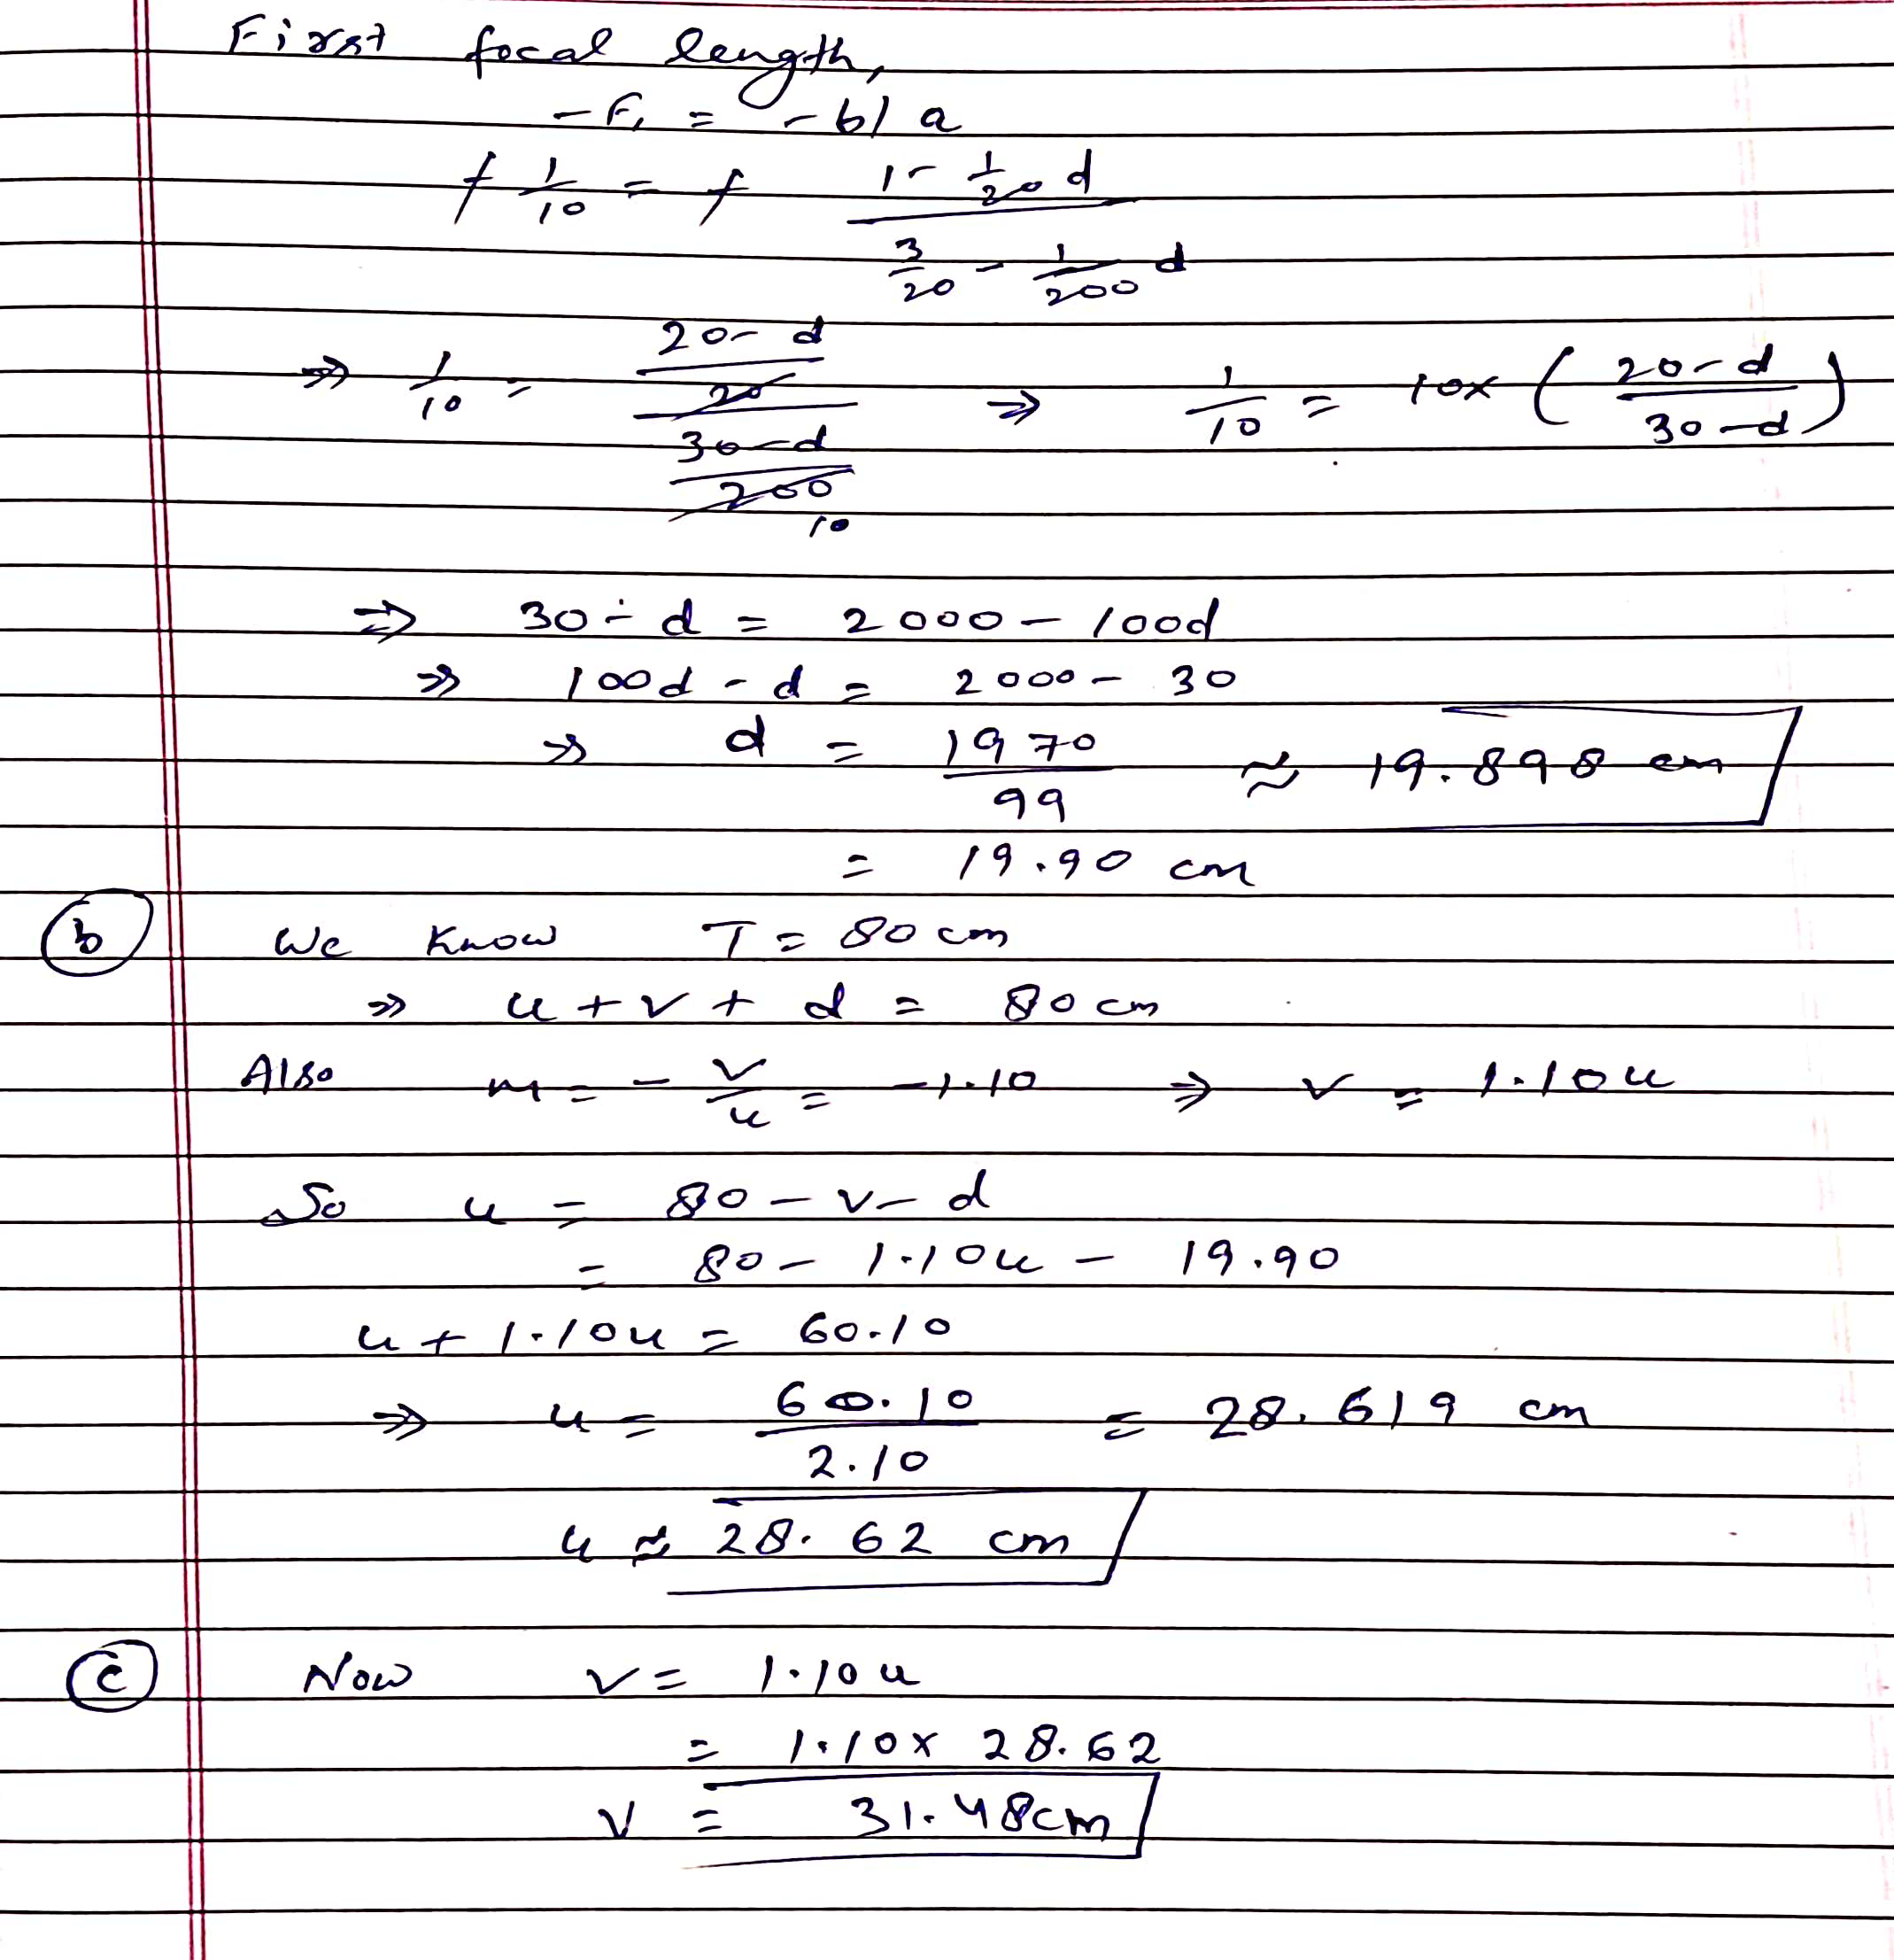 First focal length,
- f₁ = - b/a
f 1/10 = f (1 - 1/20 d)/(3/20 - 1/200 d)
⇒ 1/10 = ((20 - d)/20)/((30 - d)/200) 10 ⇒ 1/10 = 10 × ((20 - d)/(30 - d))
⇒ 30 - d = 2000 - 100d
⇒ 100d - d = 2000 - 30
⇒ d = 1970/99 ≈ 19.898 cm
= 19.90 cm
(b) We Know T = 80 cm
⇒ u + v + d = 80 cm
Also m = - v/u = -1.10 ⇒ v = 1.10u
So u = 80 - v - d
= 80 - 1.10u - 19.90
u + 1.10u = 60.10
⇒ u = 60.10/2.10 = 28.619 cm
u ≈ 28.62 cm
(c) Now v = 1.10u
= 1.10 × 28.62
v = 31.48cm